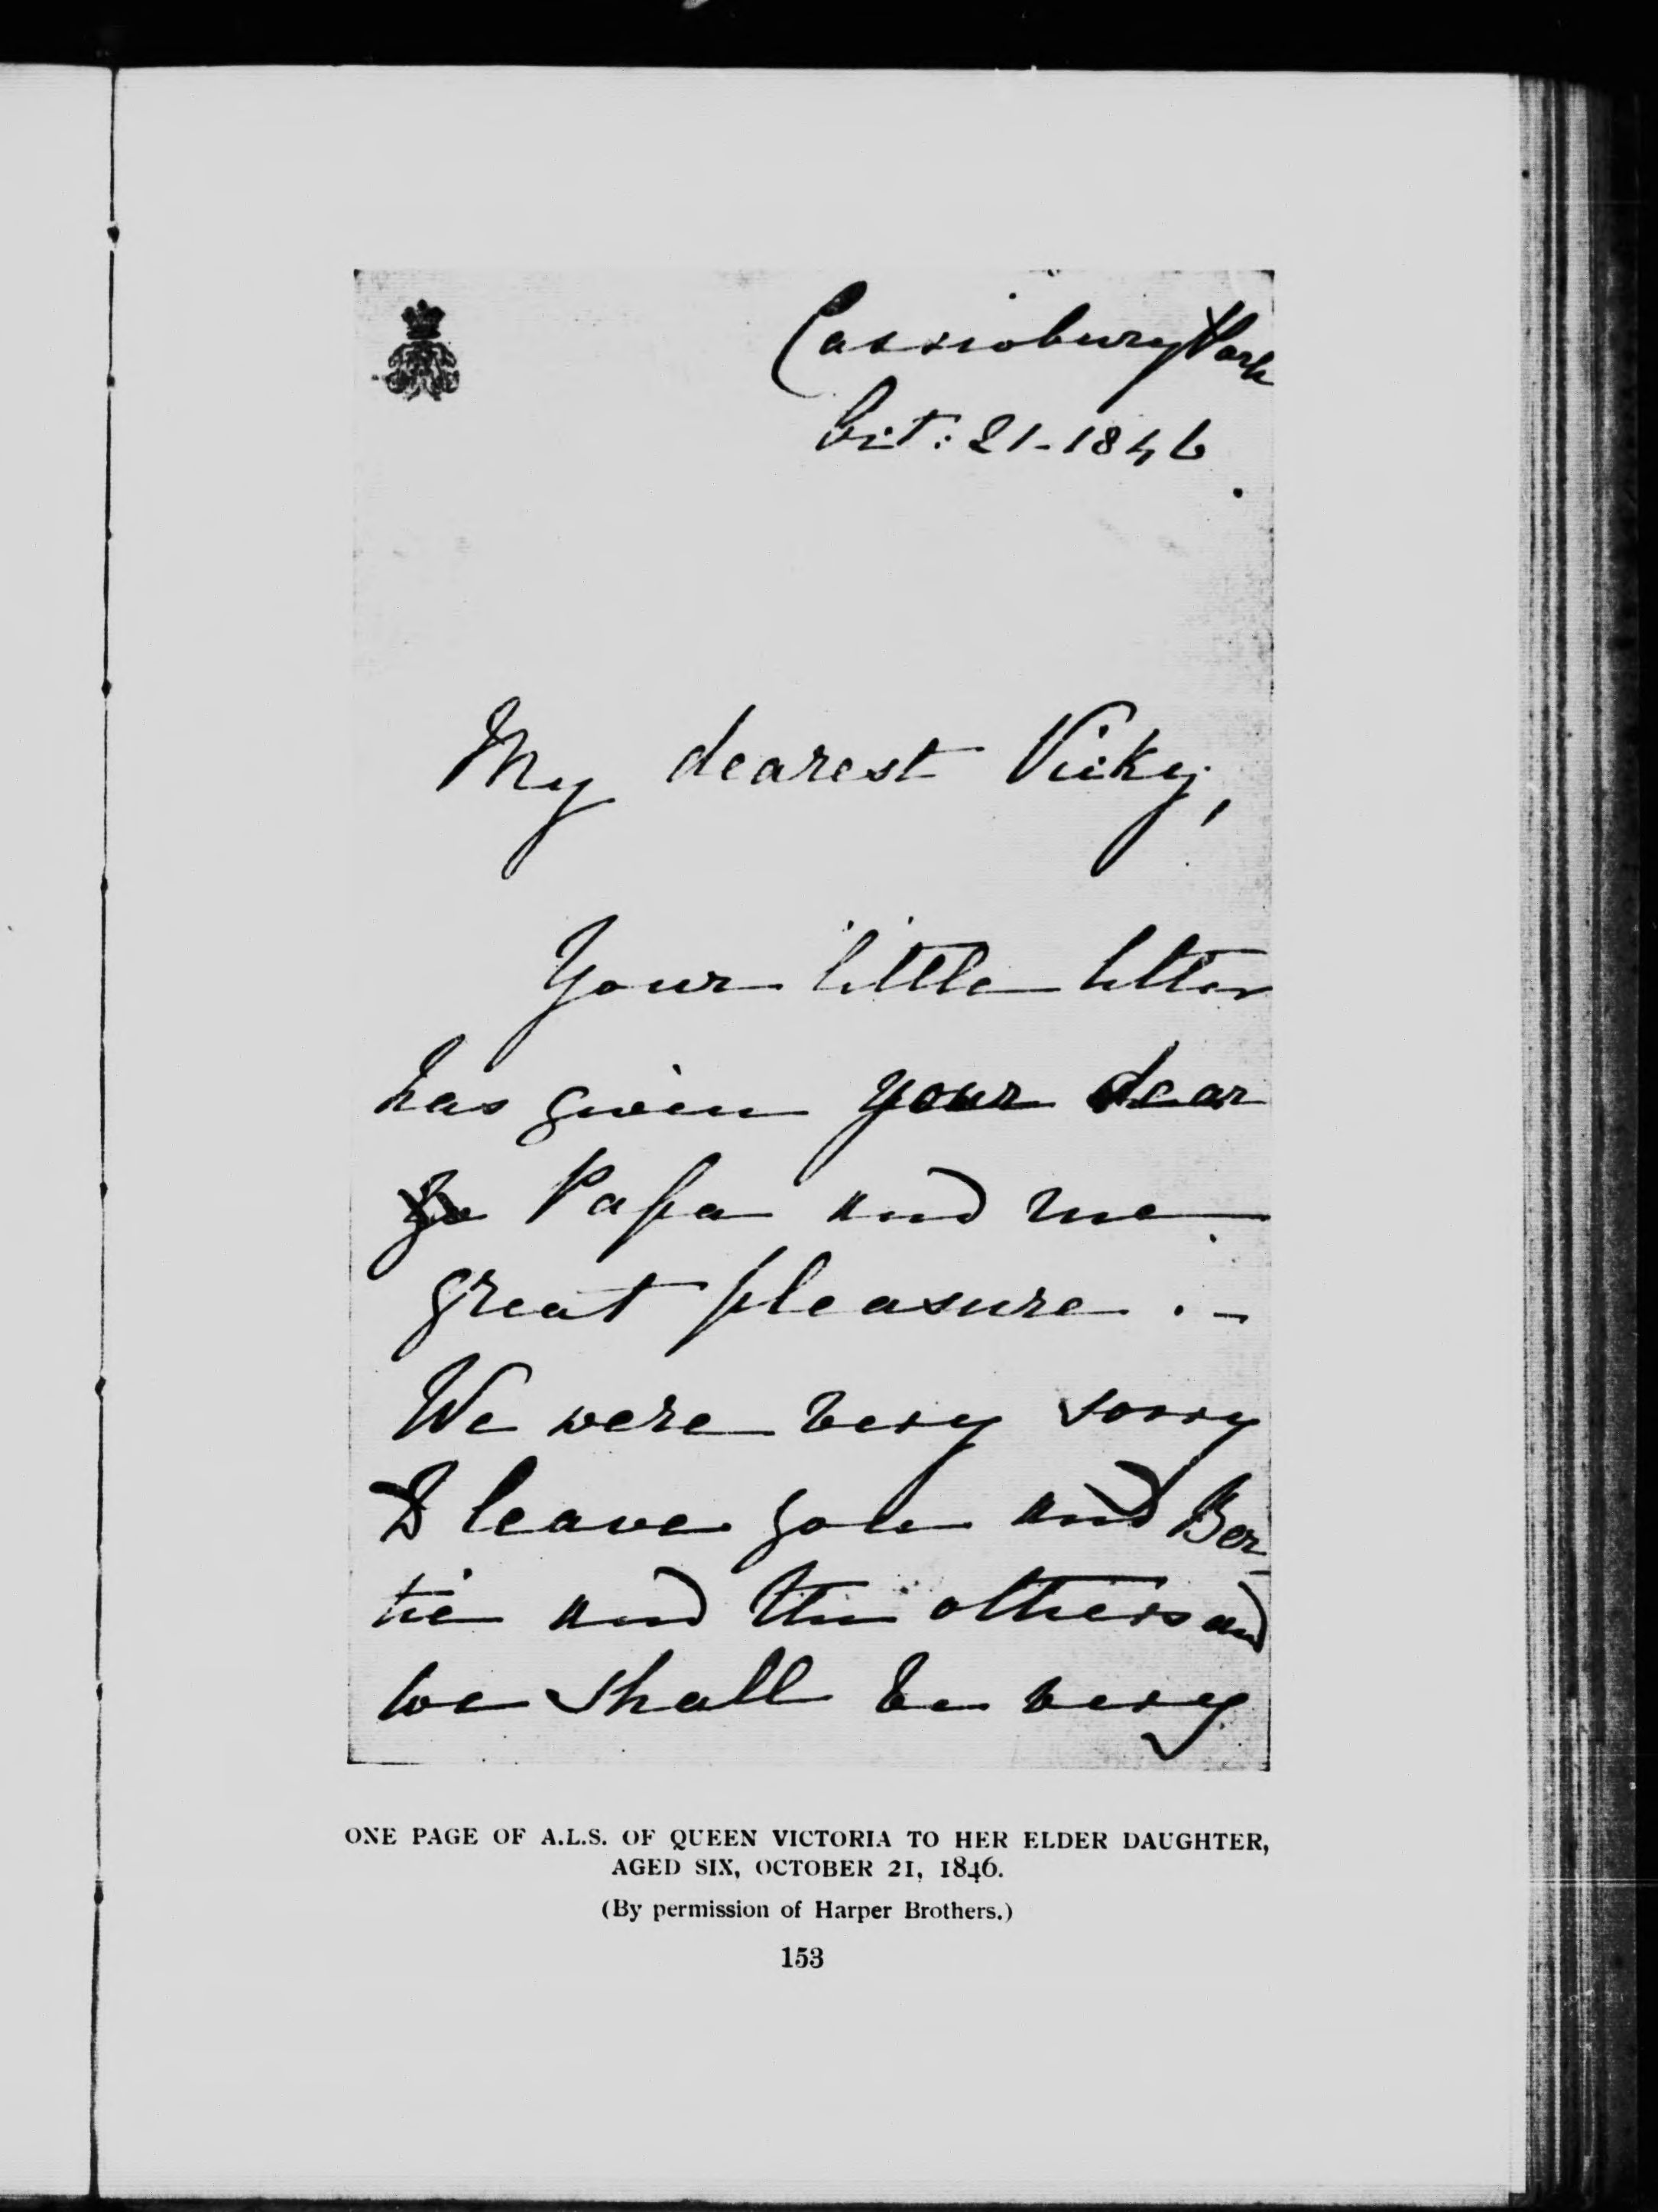 Cassiobury Park
Oct: 21-1846.
My dearest Vicky,
Your little letter
has given your dear
Papa and me
great pleasure. -
We were very sorry
to leave you and Ber
tie and the others and
we shall be very
ONE PAGE OF A.L.S. OF QUEEN VICTORIA TO HER ELDER DAUGHTER,
AGED SIX, OCTOBER 21, 1846.
(By permission of Harper Brothers.)
153